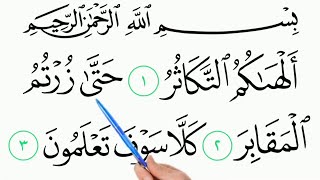 بِسْمِ اللَّهِ الرَّحْمَٰنِ الرَّحِيمِ
أَلْهَىٰكُمُ التَّكَاثُرُ ١ حَتَّىٰ زُرْتُمُ
الْمَقَابِرَ ٢ كَلَّا سَوْفَ تَعْلَمُونَ ٣